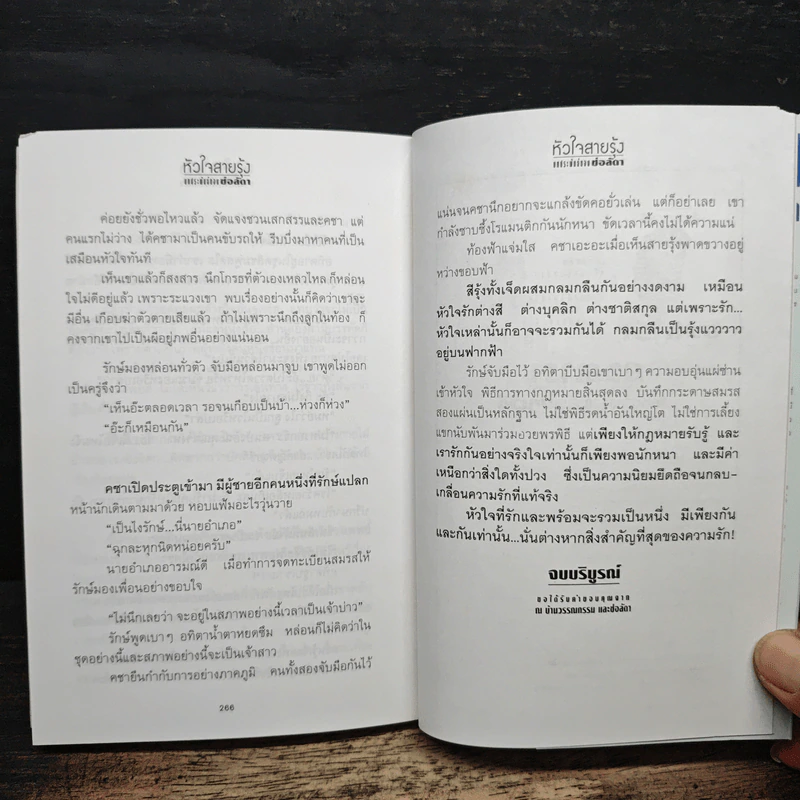 หัวใจสายรุ้ง
ช่อลัดา
ค่อยยังชั่วพอไหวแล้ว จัดแจงชวนเสกสรรและคชา แต่
คนแรกไม่ว่าง ได้คชามาเป็นคนขับรถให้ รีบบึ่งมาหาคนที่เป็น
เสมือนหัวใจทันที
เห็นเขาแล้วก็สงสาร นึกโกรธที่ตัวเองเหลวไหล ก็หล่อน
ใจไม่ดีอยู่แล้ว เพราะระแวงเขา พบเรื่องอย่างนั้นก็คิดว่าเขาจะ
มีอื่น เกือบฆ่าตัวตายเสียแล้ว ถ้าไม่เพราะนึกถึงลูกในท้อง ก็
คงจากเขาไปเป็นผีอยู่ภพอื่นอย่างแน่นอน
รักษ์มองหล่อนทั่วตัว จับมือหล่อนมาจูบ เขาพูดไม่ออก
เป็นครู่จึงว่า
“เห็นอ๊ะตลอดเวลา รอจนเกือบเป็นบ้า...ห่วงก็ห่วง”
“อ๊ะก็เหมือนกัน”
คชาเปิดประตูเข้ามา มีผู้ชายอีกคนหนึ่งที่รักษ์แปลก
หน้านักเดินตามมาด้วย หอบแฟ้มอะไรวุ่นวาย
“เป็นไงรักษ์...นี่นายอำเภอ”
“ฉุกละหุกนิดหน่อยครับ”
นายอำเภออารมณ์ดี เมื่อทำการจดทะเบียนสมรสให้
รักษ์มองเพื่อนอย่างขอบใจ
“ไม่นึกเลยว่า จะอยู่ในสภาพอย่างนี้เวลาเป็นเจ้าบ่าว”
รักษ์พูดเบาๆ อทิตาน้ำตาหยดซึม หล่อนก็ไม่คิดว่าใน
ชุดอย่างนี้และสภาพอย่างนี้จะเป็นเจ้าสาว
คชายืนกำกับการอย่างภาคภูมิ คนทั้งสองจับมือกันไว้
266
หัวใจสายรุ้ง
ช่อลัดา
แน่นจนคชานึกอยากจะแกล้งขัดคอยั่วเล่น แต่ก็อย่าเลย เขา
กำลังซาบซึ้งโรแมนติกกันนักหนา ขัดเวลานี้คงไม่ได้ความแน่
ท้องฟ้าแจ่มใส คชาเอะอะเมื่อเห็นสายรุ้งพาดขวางอยู่
หว่างขอบฟ้า
สีรุ้งทั้งเจ็ดผสมกลมกลืนกันอย่างงดงาม เหมือน
หัวใจรักต่างสี ต่างบุคลิก ต่างชาติสกุล แต่เพราะรัก...
หัวใจเหล่านั้นก็อาจจะรวมกันได้ กลมกลืนเป็นรุ้งแวววาว
อยู่บนฟากฟ้า
รักษ์จับมือไว้ อทิตาบีบมือเขาเบาๆ ความอบอุ่นแผ่ซ่าน
เข้าหัวใจ พิธีการทางกฎหมายสิ้นสุดลง บันทึกกระดาษสมรส
สองแผ่นเป็นหลักฐาน ไม่ใช่พิธีรดน้ำอันใหญ่โต ไม่ใช่การเลี้ยง
แขกนับพันมาร่วมอวยพรพิธี แต่เพียงให้กฎหมายรับรู้ และ
เรารักกันอย่างจริงใจเท่านั้นก็เพียงพอนักหนา และมีค่า
เหนือกว่าสิ่งใดทั้งปวง ซึ่งเป็นความนิยมยึดถือจนกลบ-
เกลื่อนความรักที่แท้จริง
หัวใจที่รักและพร้อมจะรวมเป็นหนึ่ง มีเพียงกัน
และกันเท่านั้น...นั่นต่างหากสิ่งสำคัญที่สุดของความรัก!
จบบริบูรณ์
ขอได้รับคำขอบคุณจาก
ณ บ้านวรรณกรรม และช่อลัดา